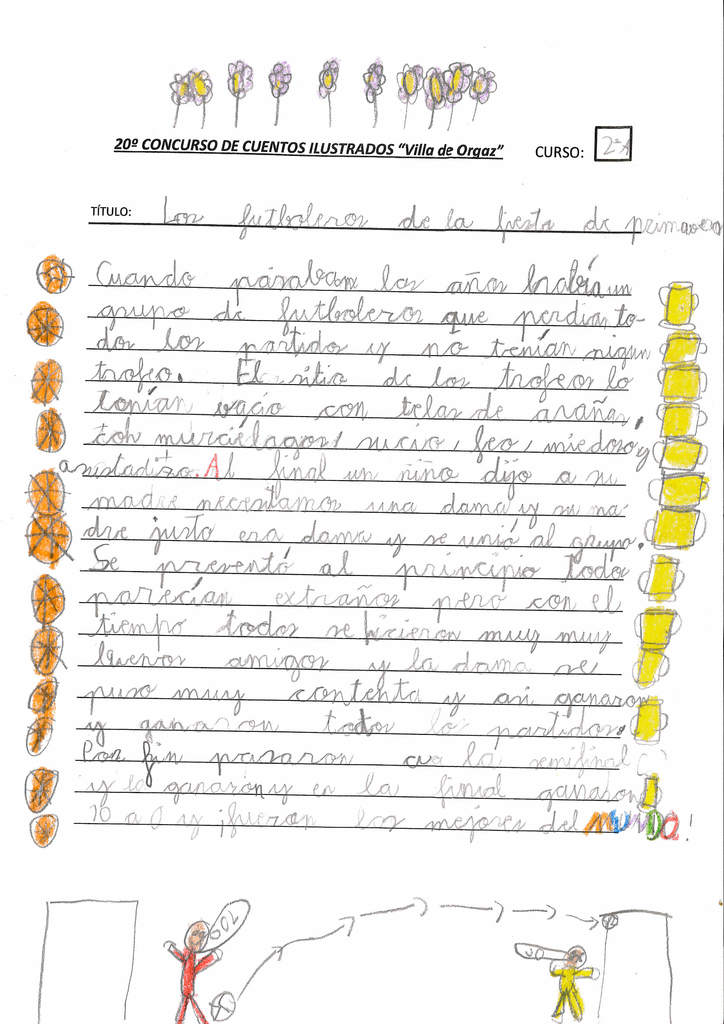 20º CONCURSO DE CUENTOS ILUSTRADOS “Villa de Orgaz” CURSO: 2ºA
TÍTULO: Los futboleros de la fiesta de primavera
Cuando pasaban los años había un
grupo de futboleros que perdian to-
dos los partidos y no tenían nigun
trofeo. El sitio de los trofeos lo
tenían vacio con telas de arañas,
con murciélagos, sucio, feo, miedoso y
asustadizo. Al final un niño dijo a su
madre necesitamos una dama y su ma-
dre justo era dama y se unió al grupo.
Se presentó al principio todos
parecían extraños pero con el
tiempo todos se hicieron muy muy
buenos amigos y la dama se
puso muy contenta y asi ganaron
y ganaron todos los partidos.
Por fin pasaron a la semifinal
y la ganaron y en la final ganaron
10 a 0 y ¡fueron los mejores del MUNDO!